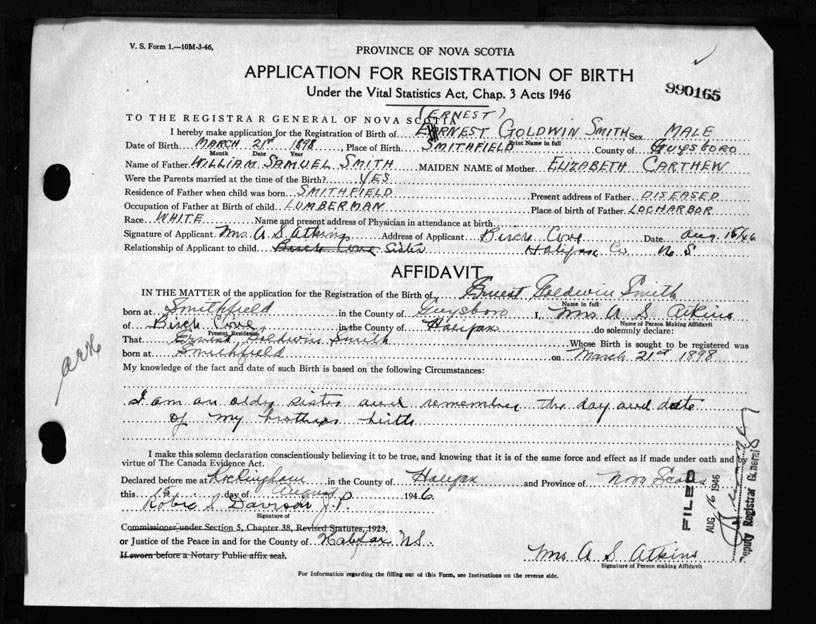 V. S. Form 1.—10M-3-46,
PROVINCE OF NOVA SCOTIA
APPLICATION FOR REGISTRATION OF BIRTH
990165
Under the Vital Statistics Act, Chap. 3 Acts 1946
TO THE REGISTRAR GENERAL OF NOVA SCOTIA
(ERNEST)
I hereby make application for the Registration of Birth of ERNEST GOLDWIN SMITH Sex MALE
Print Name in full
Date of Birth MARCH 21st 1898, Place of Birth SMITHFIELD County of GUYSBORO
Month Date Year
Name of Father WILLIAM SAMUEL SMITH MAIDEN NAME of Mother ELIZABETH CARTHEW
Were the Parents married at the time of the Birth? YES
Residence of Father when child was born SMITHFIELD Present address of Father DISEASED
Occupation of Father at Birth of child LUMBERMAN Place of birth of Father LOCHARBOR
Race WHITE Name and present address of Physician in attendance at birth
Signature of Applicant Mrs A S Atkins Address of Applicant Birch Cove Date Aug 15/46
Relationship of Applicant to child Birch Cove Sister Halifax Co N. S
AFFIDAVIT
IN THE MATTER of the application for the Registration of the Birth of Ernest Goldwin Smith
Name in full
born at Smithfield in the County of Guysboro I, Mrs A S Atkins
Name of Person Making Affidavit
of Birch Cove, in the County of Halifax do solemnly declare:
Present Residence
That Ernest Goldwin Smith Whose Birth is sought to be registered was
born at Smithfield on March 21st 1898
My knowledge of the fact and date of such Birth is based on the following Circumstances:
I am an older sister and remember the day and date
of my brothers birth
I make this solemn declaration conscientiously believing it to be true, and knowing that it is of the same force and effect as if made under oath and by
virtue of The Canada Evidence Act.
Declared before me at Rockingham in the County of Halifax and Province of Nova Scotia
this 15 day of August 1946
Robie S Davison J.P.
Signature of
Commissioner under Section 5, Chapter 38, Revised Statutes, 1923,
or Justice of the Peace in and for the County of Halifax N.S.
If sworn before a Notary Public affix seal.
Mrs A S Atkins
Signature of Person making Affidavit
For Information regarding the filling out of this Form, see Instructions on the reverse side.
FILED
AUG 16 1946
Deputy Registrar General